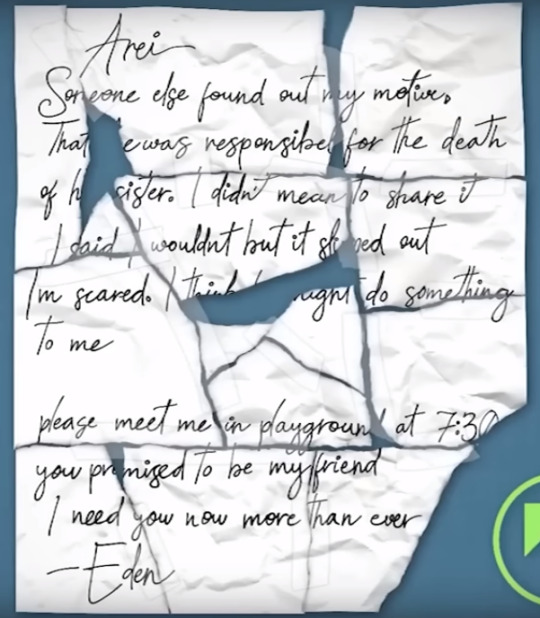 Arei
Someone else found out my motive.
That was responsibel for the death
of sister. I didn't mean to share it
I said I wouldnt but it slipped out
Im scared. I think might do something
to me
please meet me in playground at 7:30
you promised to be my friend
I need you now more than ever
—Eden